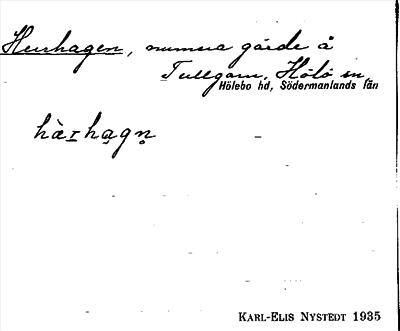 Hershagen, numera gärde å
Tullgarn, Hölö sn,
Hölebo hd, Södermanlands län
hàrhagn̥
KARL-ELIS NYSTEDT 1935